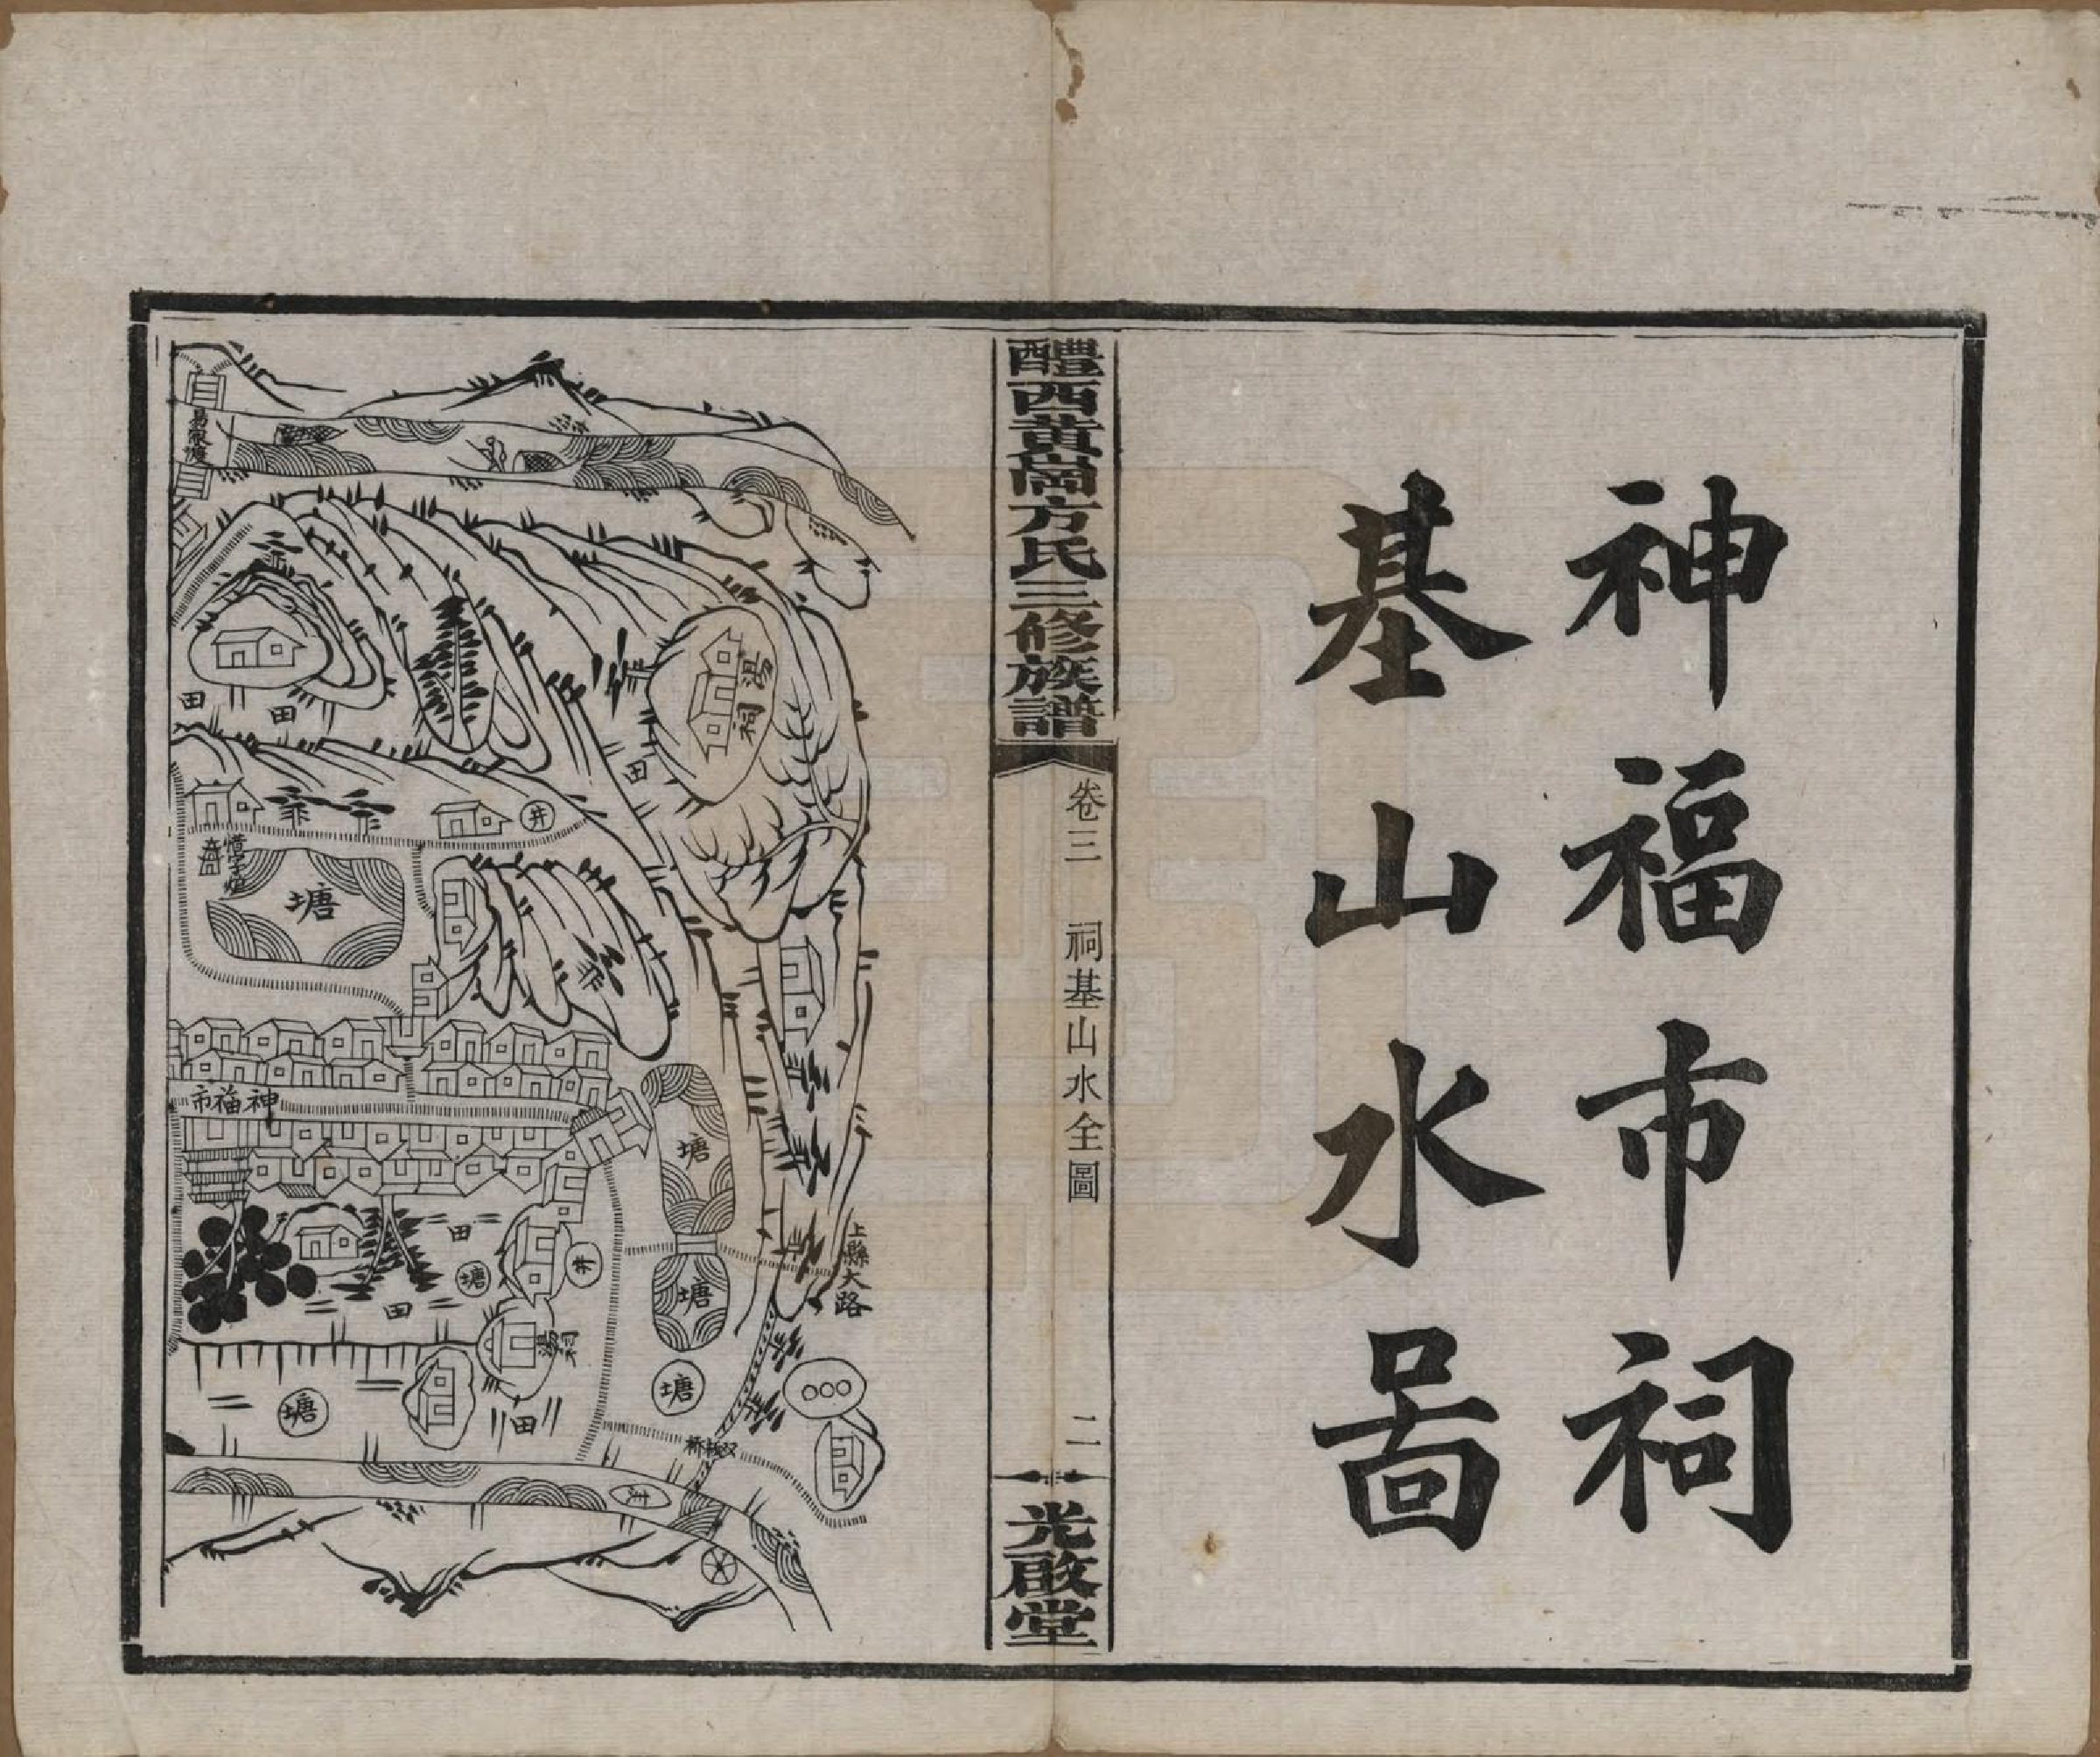 神福市祠
基山水啚
醴西黃崗方氏三修族譜
卷三
祠基山水全圖
二
光啟堂
易家灣
湯祠
田
田
田
井
惜字爐
塘
神福市
塘
上縣大路
塘
田
塘
井
田
湯祠
塘
塘
田
双板桥